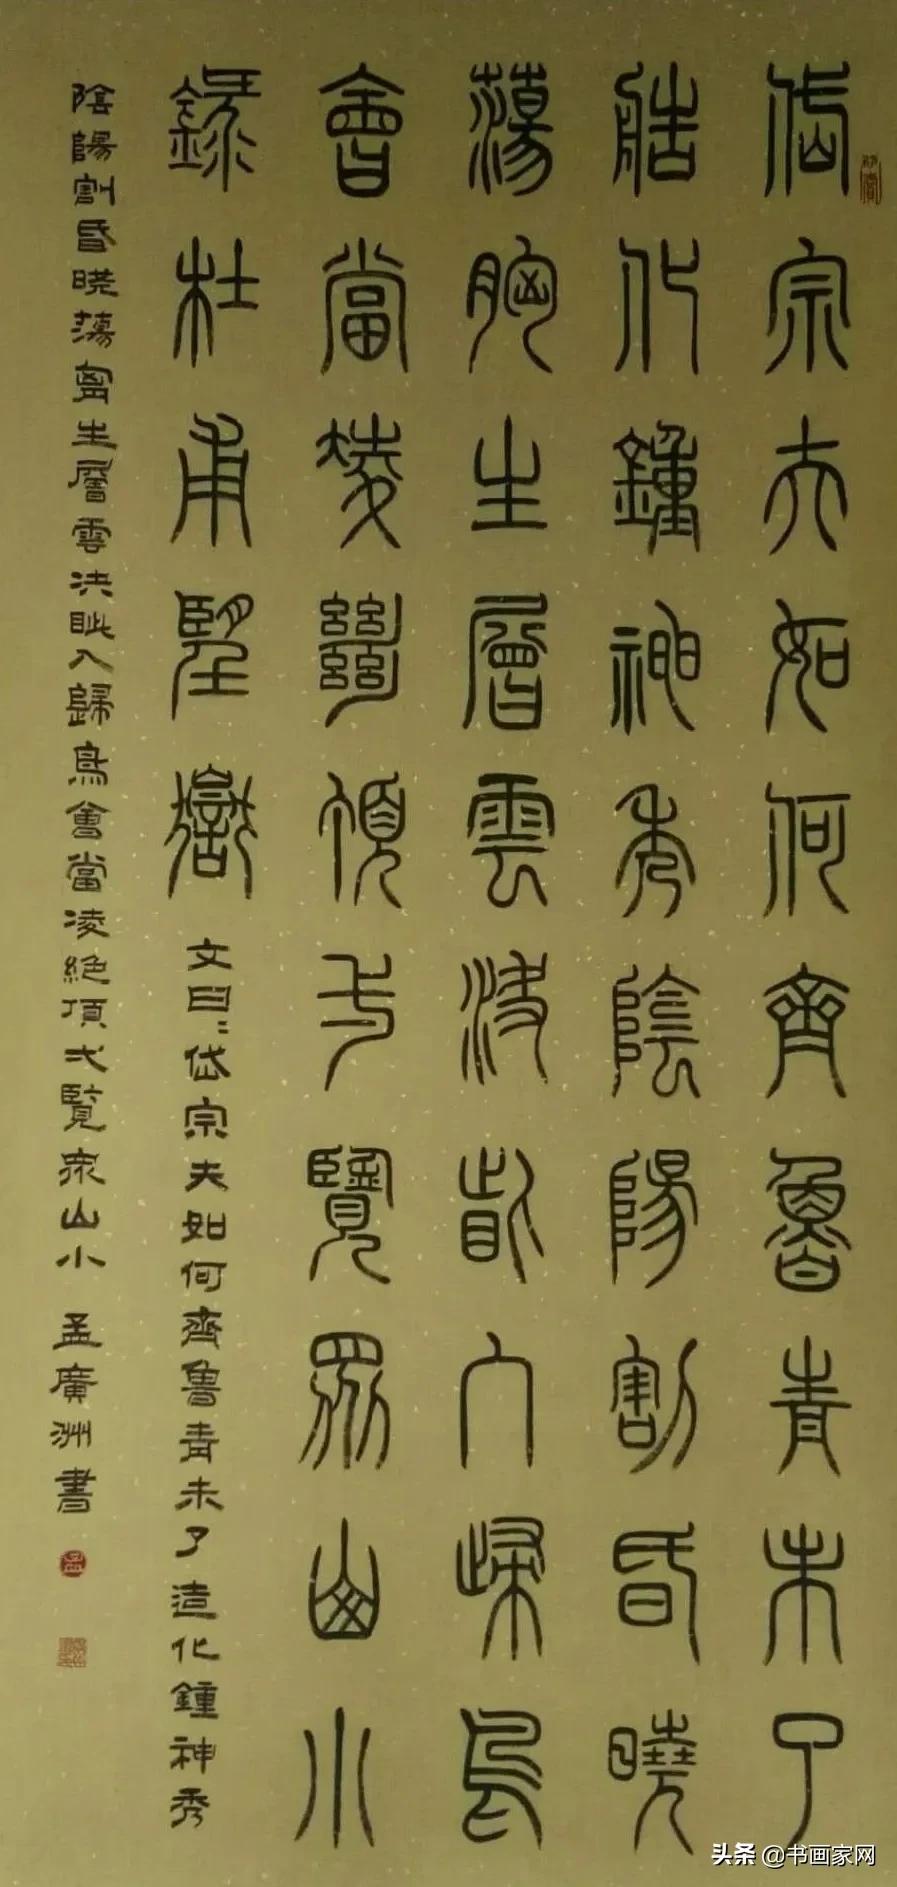 岱宗夫如何齊魯青未了
造化鍾神秀陰陽割昏曉
蕩胸生層雲決眥入歸鳥
會當凌絕頂一覽眾山小
錄杜甫望嶽
文曰：岱宗夫如何齊魯青未了造化鍾神秀
陰陽割昏曉蕩胷生層雲決眦入歸鳥會當凌絕頂弌覽眾山小 孟廣洲書
头条 @书画家网